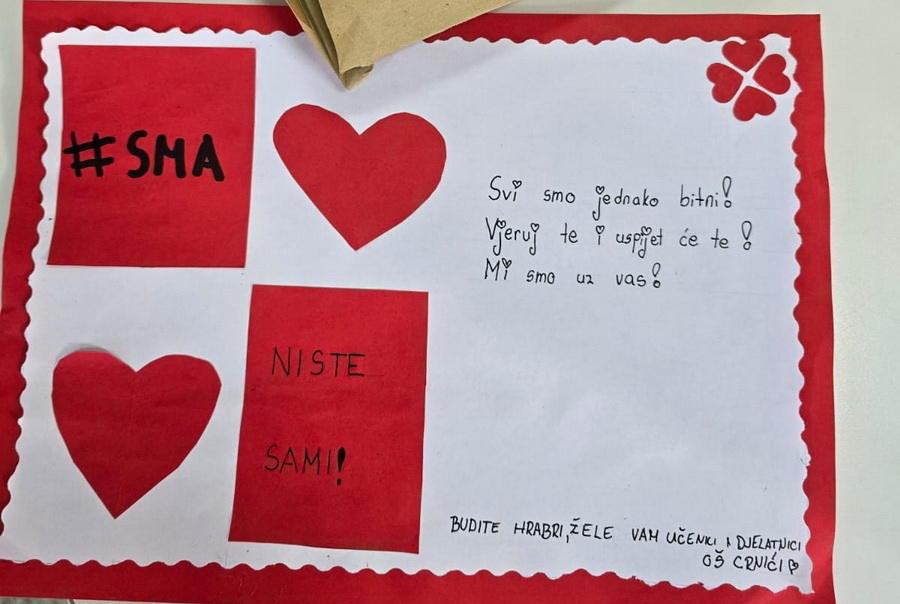 #SMA
NISTE
SAMI!
Svi smo jednako bitni!
Vjeruj te i uspijet će te!
Mi smo uz vas!
BUDITE HRABRI, ŽELE VAM UČENKI I DJELATNICI
OŠ CRNIĆI